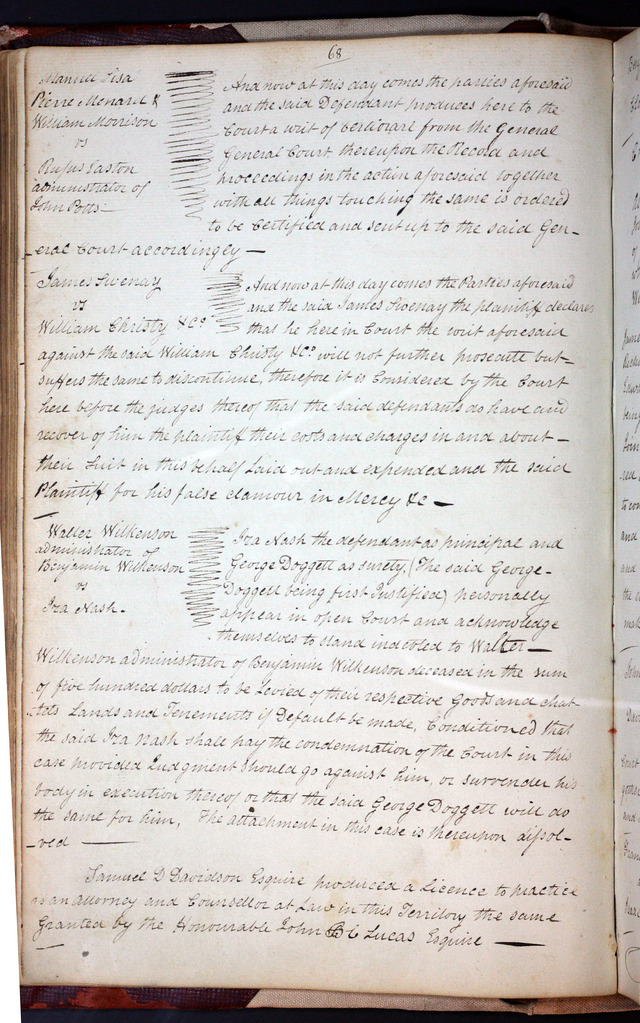 68
Manuel Lisa
Pierre Menard &
William Morrison
vs
Rufus Easton
administrator of
John Potts
And now at this day comes the parties aforesaid
and the said Defendant produces here to the
Court a writ of Certiorari from the General
General Court thereupon the Record and
proceedings in the action aforesaid together
with all things touching the same is ordered
to be Certified and sent up to the said Gen-
-eral Court accordingly —
James Swenay
vs
William Christy &Co
And now at this day comes the Parties aforesaid
and the said James Swenay the plaintiff declares
that he here in Court the writ aforesaid
against the said William Christy &Co will not further prosecute but-
suffers the same to discontinue, therefore it is Considered by the Court
here before the judges thereof that the said defendants do have and
recover of him the plaintiff their costs and charges in and about —
their Suit in this behalf Laid out and expended and the said
Plaintiff for his false clamour in Mercy &c —
Walter Wilkenson
administrator of
Benjamin Wilkenson
vs
Ira Nash.
Ira Nash the defendant as principal and
George Doggett as surety, (The said George-
Doggett being first Justified) personally
appear in open Court and acknowledge
themselves to stand indebted to Walter —
Wilkenson administrator of Benjamin Wilkenson deceased in the sum
of five hundred dollars to be Levied of their respective Goods and chat-
-tels Lands and Tenements if Default be made, Conditioned that
the said Ira Nash shall pay the condemnation of the Court in this
case provided Judgment should go against him, or surrender his
body in execution thereof or that the said George Doggett will do
the same for him, The attachment in this case is thereupon dissol-
-ved —
Samuel D Davidson Esquire produced a Licence to practice
as an attorney and Counsellor at Law in this Territory the same
Granted by the Honourable John B C Lucas Esquire —